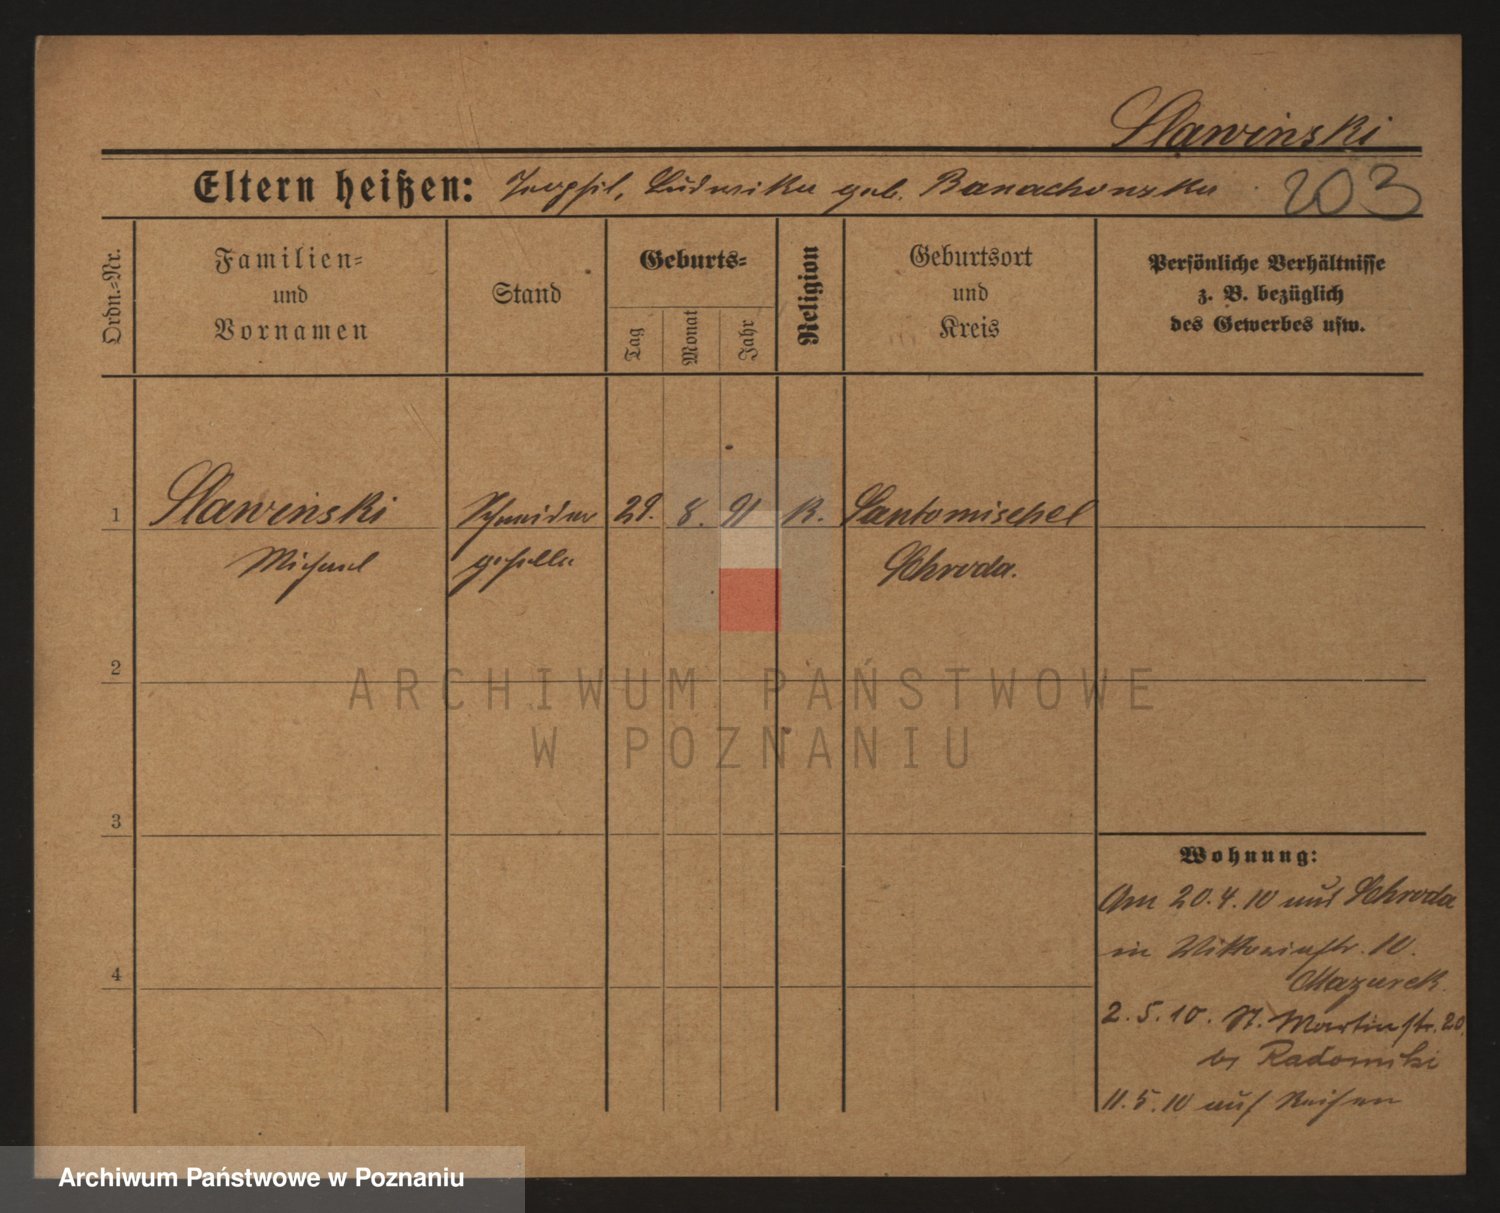 Slawinski
Eltern heißen: Ludwika geb. Banachowska 203
Ordn.-Nr.
Familien-
und
Vornamen
Stand
Geburts-
Tag
Monat
Jahr
Religion
Geburtsort
und
Kreis
Persönliche Verhältnisse
z. B. bezüglich
des Gewerbes usw.
1 Slawinski Schneider 29. 8. 91 K. Santomischel
Michael geselle Schroda.
2
ARCHIWUM PAŃSTWOWE
W POZNANIU
3
4
Wohnung:
Am 20.4.10 aus Schroda
in Viktoriastr. 10.
Mazurek.
2.5.10. St. Martinstr. 20
bei Radomski
11.5.10 auf Reisen
Archiwum Państwowe w Poznaniu